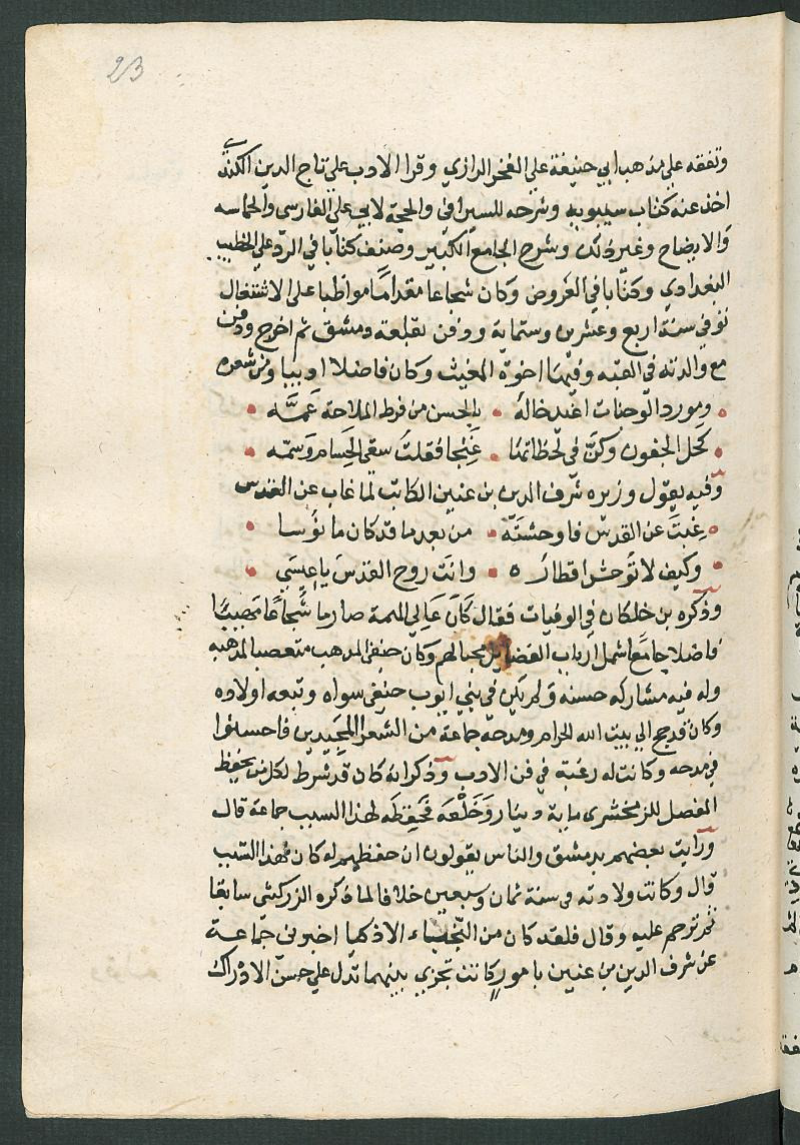 23
وتفقه على مذهب ابي حنيفة على الفخر الرازي وقرا الادب على تاج الدين الكندي
اخذ عنه كتاب سيبويه وشرحه للسيرافي والحجة لابي علي الفارسي والحماسه
والايضاح وغير ذلك وشرح الجامع الكبير وصنف كتابا في الرد على الخطيب
البغدادي وكتابا في العروض وكان شجاعا مقداما مواظبا على الاشتغال
توفي سنة اربع وعشرين وستماية ودفن بقلعة دمشق ثم اخرج ودفن
مع والدته في القبه وفيها اخوه المغيث وكان فاضلا اديبا ومن شعره
ومورد الوجنات اغيد خاله • بالحسن من فرط الملاحة عمه
كحل الجفون وكن في لحظاتها • غنجا فقلت سقى الحسام وسمه
وفيه يقول وزيره شرف الدين بن عنين الكاتب لما غاب عن القدس
غبت عن القدس فاوحشته • من بعد ما قد كان مانوسا
وكيف لا توحش اقطاره • وانت روح القدس يا عيسي
وذكره بن خلكان في الوفيات فقال كان عالي الهمة صارما شجاعا
فاضلا جامعا شمل ارباب الفضايل محبا لهم وكان حنفي المذهب متعصبا لمذهبه
وله فيه مشاركه حسنه ولم يكن في بني ايوب حنفي سواه وتبعه اولاده
وكان قد حج الي بيت الله الحرام ومدحه جماعة من الشعرا المجيدين فاحسنوا
في مدحه وكانت له رغبة في فن الادب وذكر انه كان قد شرط لكل من يحفظ
المفصل للزمخشري ماية دينار وخلعة فحفظه لهذا السبب جماعة قال
ورايت بعضهم بدمشق والناس يقولون ان حفظهم له كان لهذا السبب
قال وكانت ولادته في سنة ثمان وسبعين خلافا لما ذكره الزركشي سابقا
ثم ترحم عليه وقال فلقد كان من النجباء الاذكيا اخبرني جماعة
عن شرف الدين بن عنين بامور كانت تجري بينهما تدل علي حسن الادراك